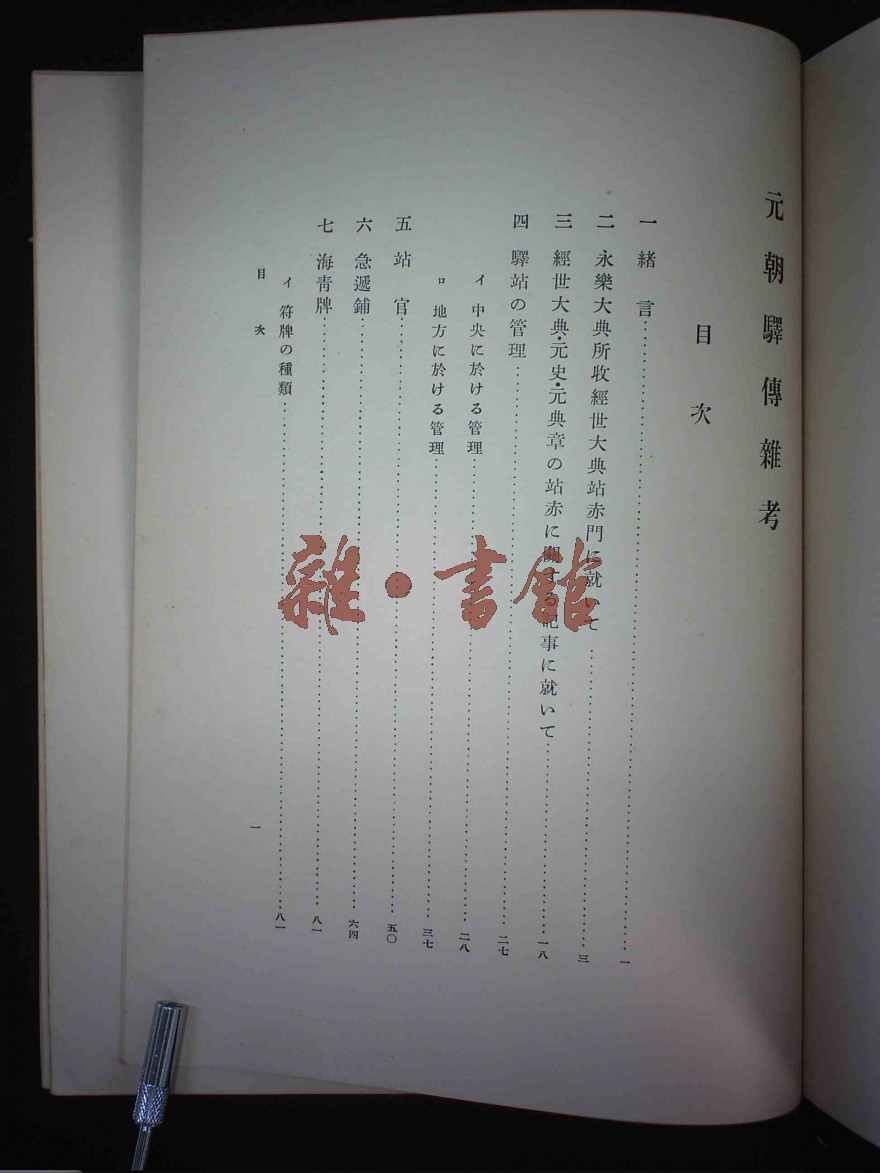 元朝驛傳雜考
目次
一 緒言……一
二 永樂大典所收經世大典站赤門に就いて……三
三 經世大典・元史・元典章の站赤に關する記事に就いて……一八
四 驛站の管理……二七
イ 中央に於ける管理……二八
ロ 地方に於ける管理……三七
五 站官……五〇
六 急遞鋪……六四
七 海青牌……八一
イ 符牌の種類……八一
目次
一
雜・書館